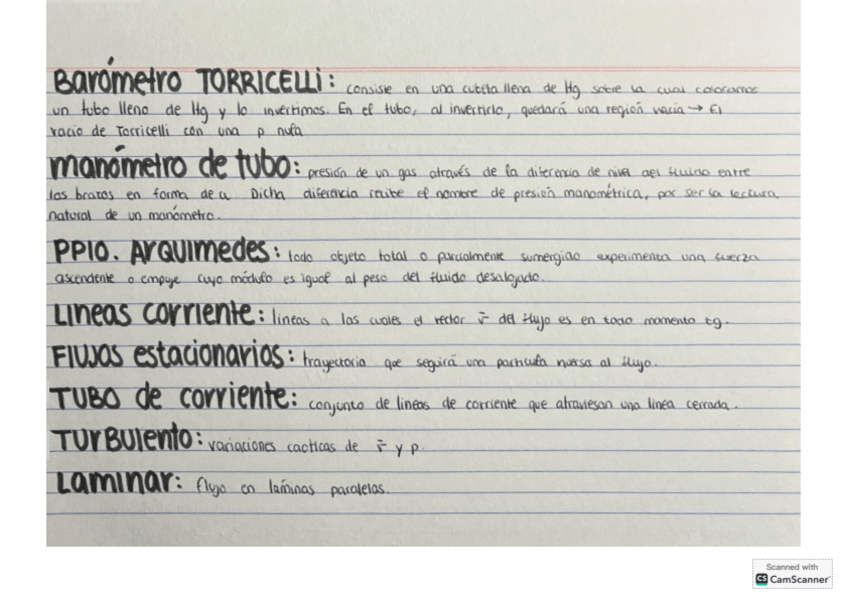 Barómetro TORRICELLi: consiste en una cubeta llena de Hg sobre la cual colocamos
un tubo lleno de Hg y lo invertimos. En el tubo, al invertirlo, quedará una región vacía → El
vacío de Torricelli con una p nula
manómetro de tubo: presión de un gas através de la diferencia de nivel del fluido entre
los brazos en forma de u Dicha diferencia recibe el nombre de presión manométrica, por ser la lectura
natural de un manómetro.
PPIO. ARQUIMEDES: todo objeto total o parcialmente sumergido experimenta una fuerza
ascendente o empuje cuyo módulo es igual al peso del fluido desalojado.
Lineas corriente: lineas a las cuales el vector v̄ del flujo es en todo momento tg.
Flujos estacionarios: trayectoria que seguirá una particula inmersa al flujo.
TUBO de corriente: conjunto de lineas de corriente que atraviesan una linea cerrada.
TURBULento: variaciones caoticas de v̄ y p.
Laminar: flujo en láminas paralelas.
Scanned with
CS CamScanner